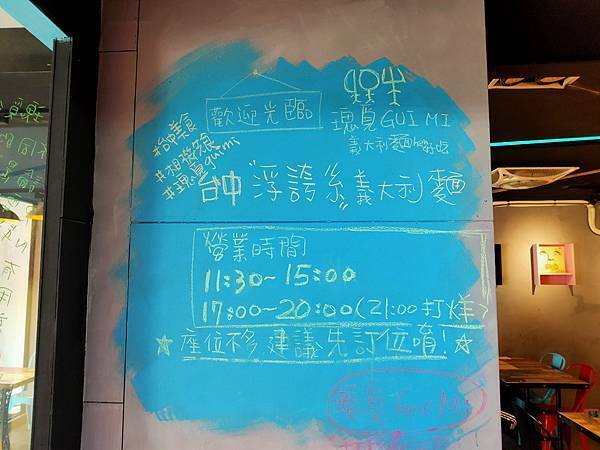 歡迎光臨
瑰覓 GUI MI
義大利麵
#台中美食
#相機食
#瑰覓guimi
台中"浮誇系"義大利麵
營業時間
11:30~15:00
17:00~20:00(21:00打烊)
☆座位不多 建議先訂位唷!☆
瑰覓 Gui Mi